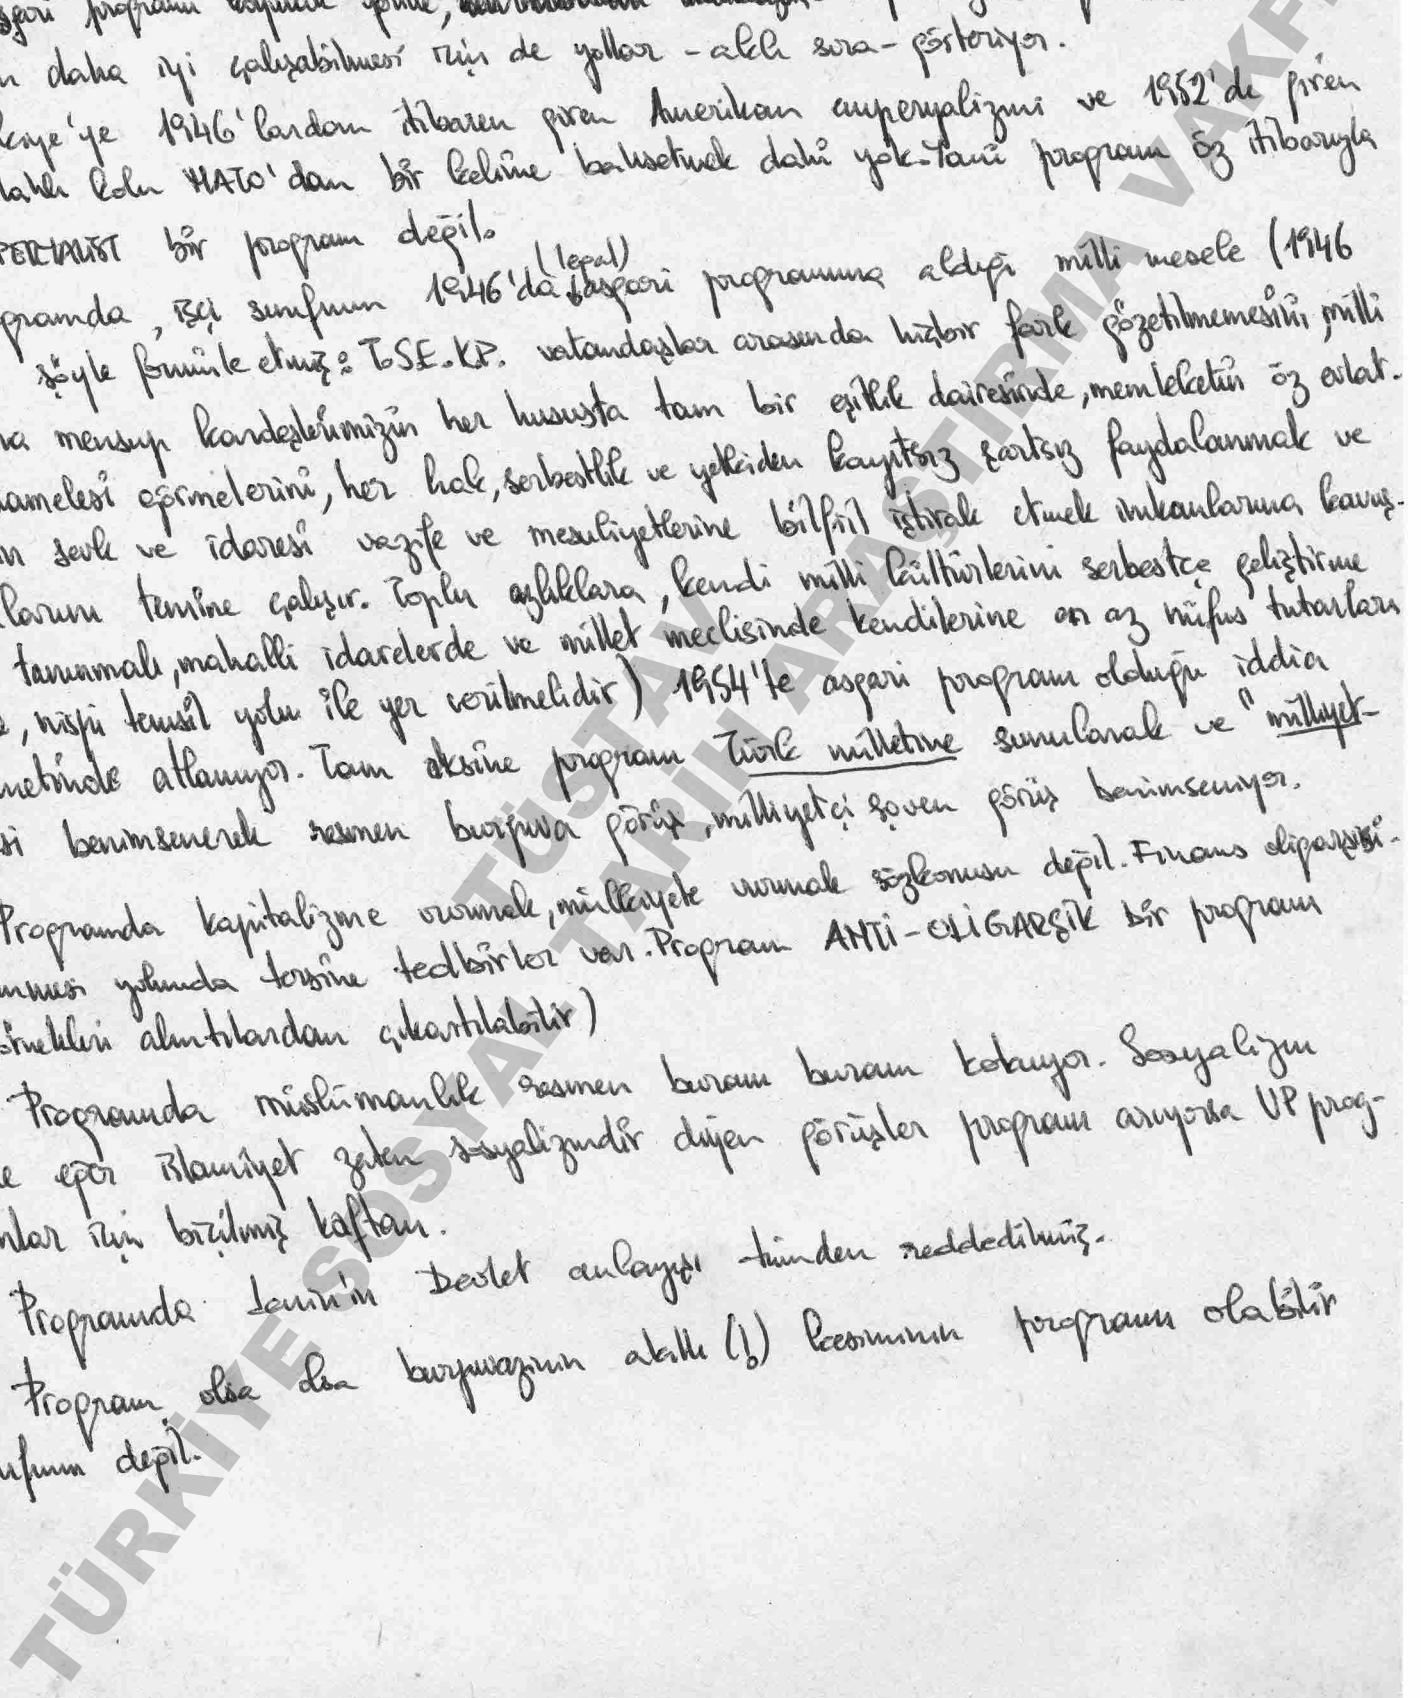 asgari programı
n daha iyi çalışabilmesi için de yollar - aklı sıra - gösteriyor.
kiye'ye 1946'lardan itibaren giren Amerikan emperyalizmi ve 1952'de giren
lahlı kolu NATO'dan bir kelime bahsetmek dahi yok. Yani program öz itibarıyla
PERYALİST bir program değil.
gramda, işçi sınıfının 1946'da (legal) asgari programına aldığı milli mesele (1946
şöyle formüle etmiş: T.S.E.K.P. vatandaşlar arasında hiçbir fark gözetilmemesini, milli
na mensup kardeşlerimizin her hususta tam bir eşitlik dairesinde, memleketin öz evlat-
amelesi görmelerini, her hak, serbestlik ve yetkiden kayıtsız şartsız faydalanmak ve
n sevk ve idaresi vazife ve mesuliyetlerine bilfiil iştirak etmek imkanlarına kavuş-
larını temine çalışır. Toplu azlıklara, kendi milli kültürlerini serbestçe geliştirme
tanınmalı, mahalli idarelerde ve millet meclisinde kendilerine en az nüfus tutarları
, nispi temsil yolu ile yer verilmelidir) 1954'te asgari program olduğu iddia
metinde atlanıyor. Tam aksine program Türk milletine sunularak ve "milliyet-
si benimsenerek resmen burjuva görüş, milliyetçi şoven görüş benimseniyor.
Programda kapitalizme vurmak, mülkiyete vurmak sözkonusu değil. Finans oligarşisi-
nmesi yolunda tersine tedbirler var. Program ANTİ-OLİGARŞİK bir program
örnekleri alıntılardan çıkartılabilir)
Programda müslümanlık resmen buram buram kokuyor. Sosyalizm
e eğer islamiyet zaten sosyalizmdir diyen görüşler program arıyorsa VP prog-
nlar için biçilmiş kaftan.
Programda Lenin'in Devlet anlayışı tümden reddedilmiş.
Program olsa olsa burjuvazinin akıllı (!) kesiminin programı olabilir
ıfının değil.
TÜSTAV
TÜRKİYE SOSYAL TARİH ARAŞTIRMA VAKFI